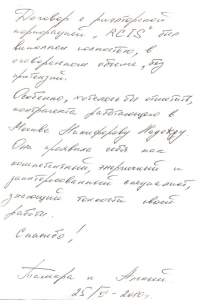 Договор с риэлторской
корпорацией „RCTS“ был
выполнен полностью, в
оговоренном объеме, без
претензий.
Особенно, хотелось бы отметить,
контрагента работающего в
Москве Никифорову Надежду.
Она проявила себя как
компетентный, энергичный и
заинтересованный специалист,
знающий тонкости своей
работы.
Спасибо!
и Алексей
25/VI-2010г.